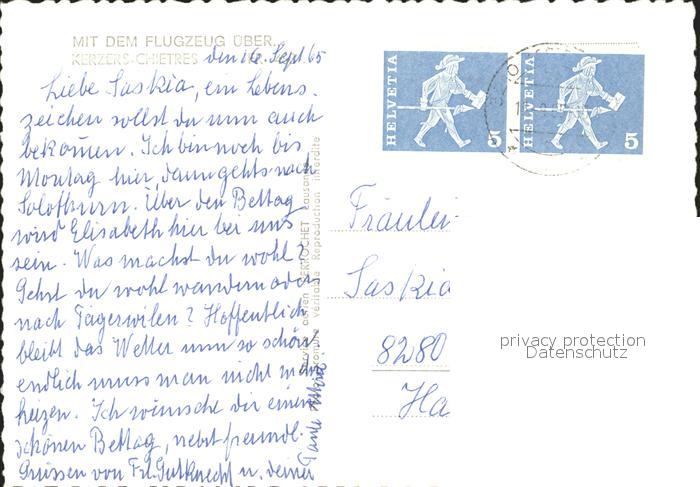 MIT DEM FLUGZEUG ÜBER
KERZERS-CHIETRES
den 16. Sept. 65
Liebe Saskia, ein Lebens-
zeichen sollst du nun auch
bekommen. Ich bin noch bis
Montag hier, dann gehts nach
Solothurn. Über den Bettag
wird Elisabeth hier bei uns
sein. Was machst du wohl?
Gehst du wohl wandern oder
nach Tägerwilen? Hoffentlich
bleibt das Wetter nun so schön
endlich muss man nicht mehr
heizen. Ich wünsche dir einen
schönen Bettag, nebst freundl.
Grüssen von Frl. Gutknecht u. deiner
Tante
PERROCHET Lausanne
Véritable Reproduction interdite
HELVETIA
5
HELVETIA
5
Fräulei
Saskia
8280
privacy protection
Datenschutz